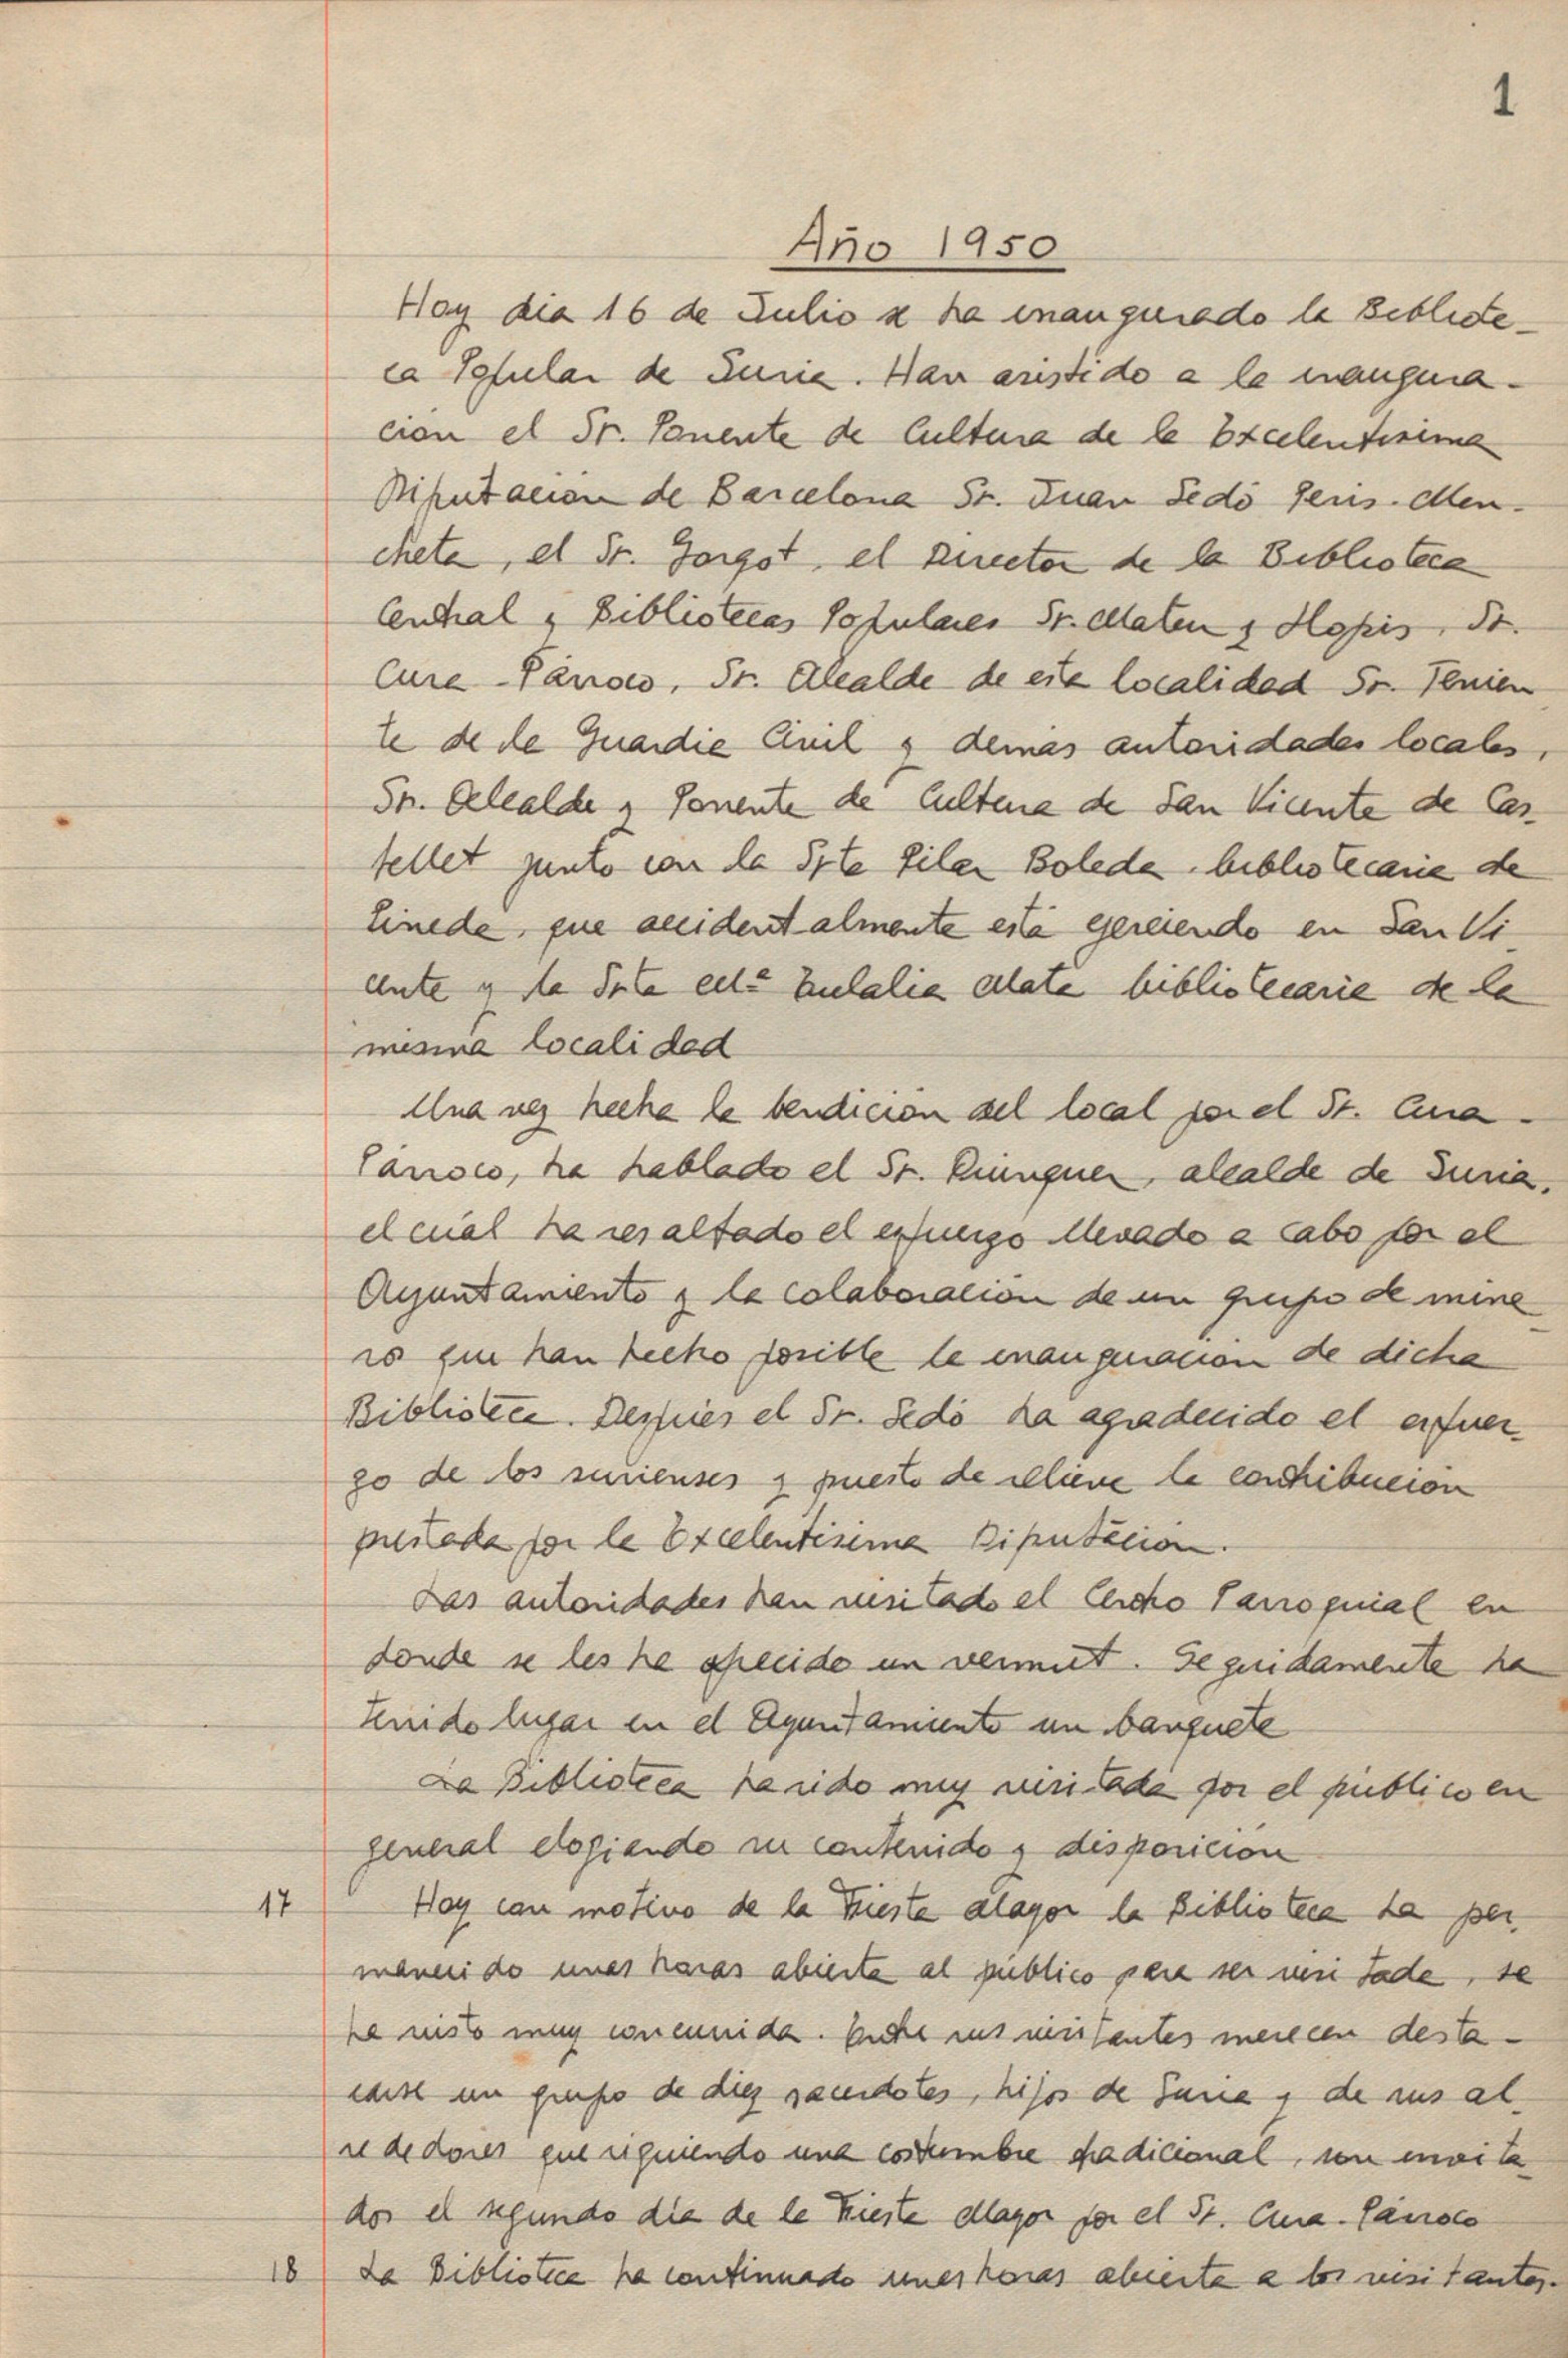 1
Año 1950
Hoy dia 16 de Julio se ha inaugurado la Bibliote-
ca Popular de Suria. Han asistido a la inaugura-
cion el Sr. Ponente de Cultura de la Excelentisima
Diputacion de Barcelona Sr. Juan Sedó Peris-Men-
cheta, el Sr. Gorgot, el Director de la Biblioteca
Central y Bibliotecas Populares Sr. Mateu y Llopis, Sr.
Cura-Párroco, Sr. Alcalde de esta localidad Sr. Tenien
te de la Guardia Civil y demás autoridades locales,
Sr. Alcalde y Ponente de Cultura de San Vicente de Cas-
tellet junto con la Srta Pilar Boleda, bibliotecaria de
que accidentalmente está ejerciendo en San Vi
cente y la Srta Mª Eulalia Mata bibliotecaria de la
misma localidad
Una vez hecha la bendición del local por el Sr. Cura-
Párroco, ha hablado el Sr. alcalde de Suria,
el cual ha resaltado el esfuerzo llevado a cabo por el
Ayuntamiento y la colaboración de un grupo de mine
ros que han hecho posible la inauguracion de dicha
Biblioteca. Después el Sr. Sedó ha agradecido el esfuer-
zo de los surienses y puesto de relieve la contribución
prestada por la Excelentisima Diputación.
Las autoridades han visitado el Centro Parroquial en
donde se les ha ofrecido un vermut. Seguidamente ha
tenido lugar en el Ayuntamiento un banquete
La Biblioteca ha sido muy visitada por el público en
general elogiando su contenido y disposición
17 Hoy con motivo de la Fiesta Mayor la Biblioteca ha per-
manecido unas horas abierta al público para ser visitada, se
ha visto muy concurrida. Entre sus visitantes merecen desta-
carse un grupo de diez sacerdotes, hijos de Suria y de sus al-
rededores que siguiendo una costumbre tradicional, son invita
dos el segundo día de la Fiesta Mayor por el Sr. Cura-Párroco
18 La Biblioteca ha continuado unas horas abierta a los visitantes.